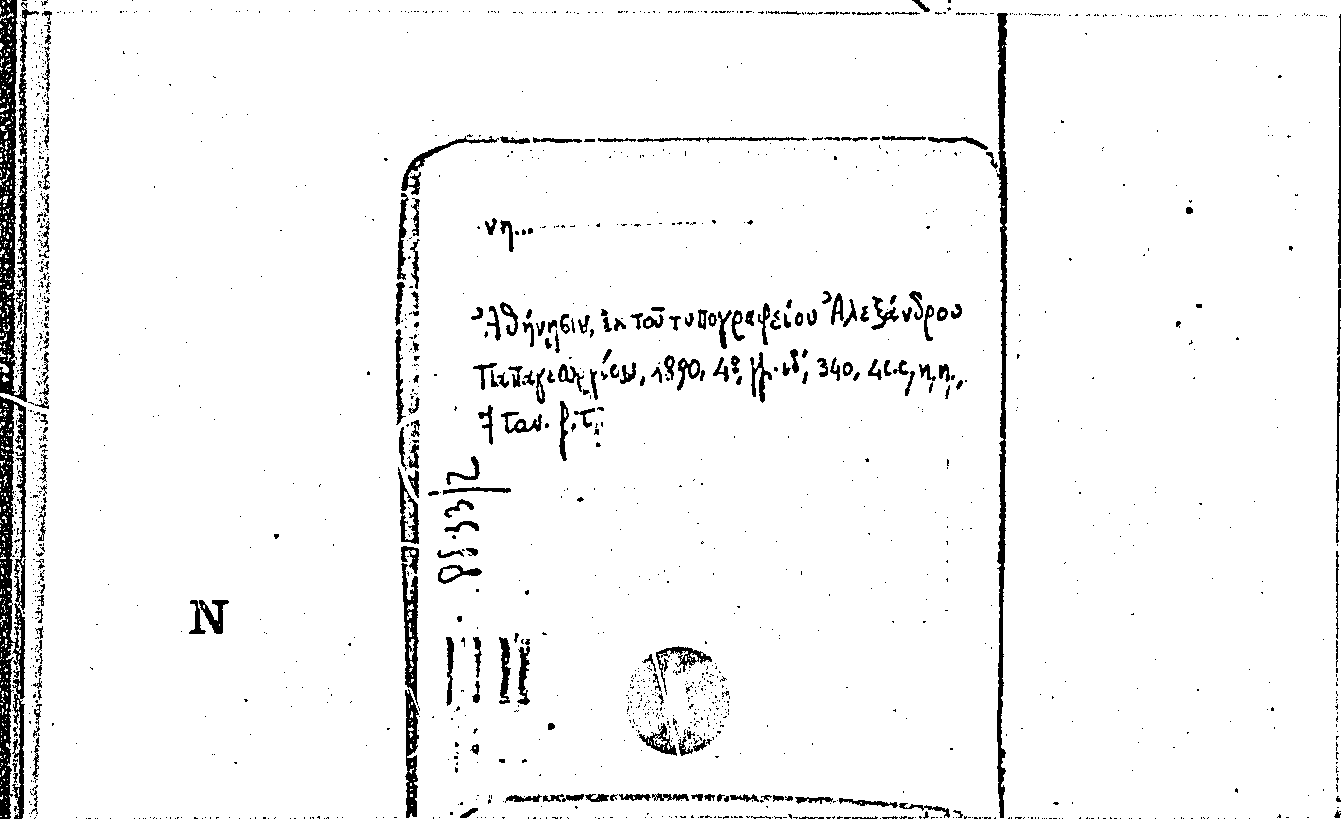 νη...
Ἀθήνησιν, ἐκ τοῦ τυπογραφείου Ἀλεξάνδρου
Παπαγεωργίου, 1890, 4°, 340,
7 παν. β. τ.
N